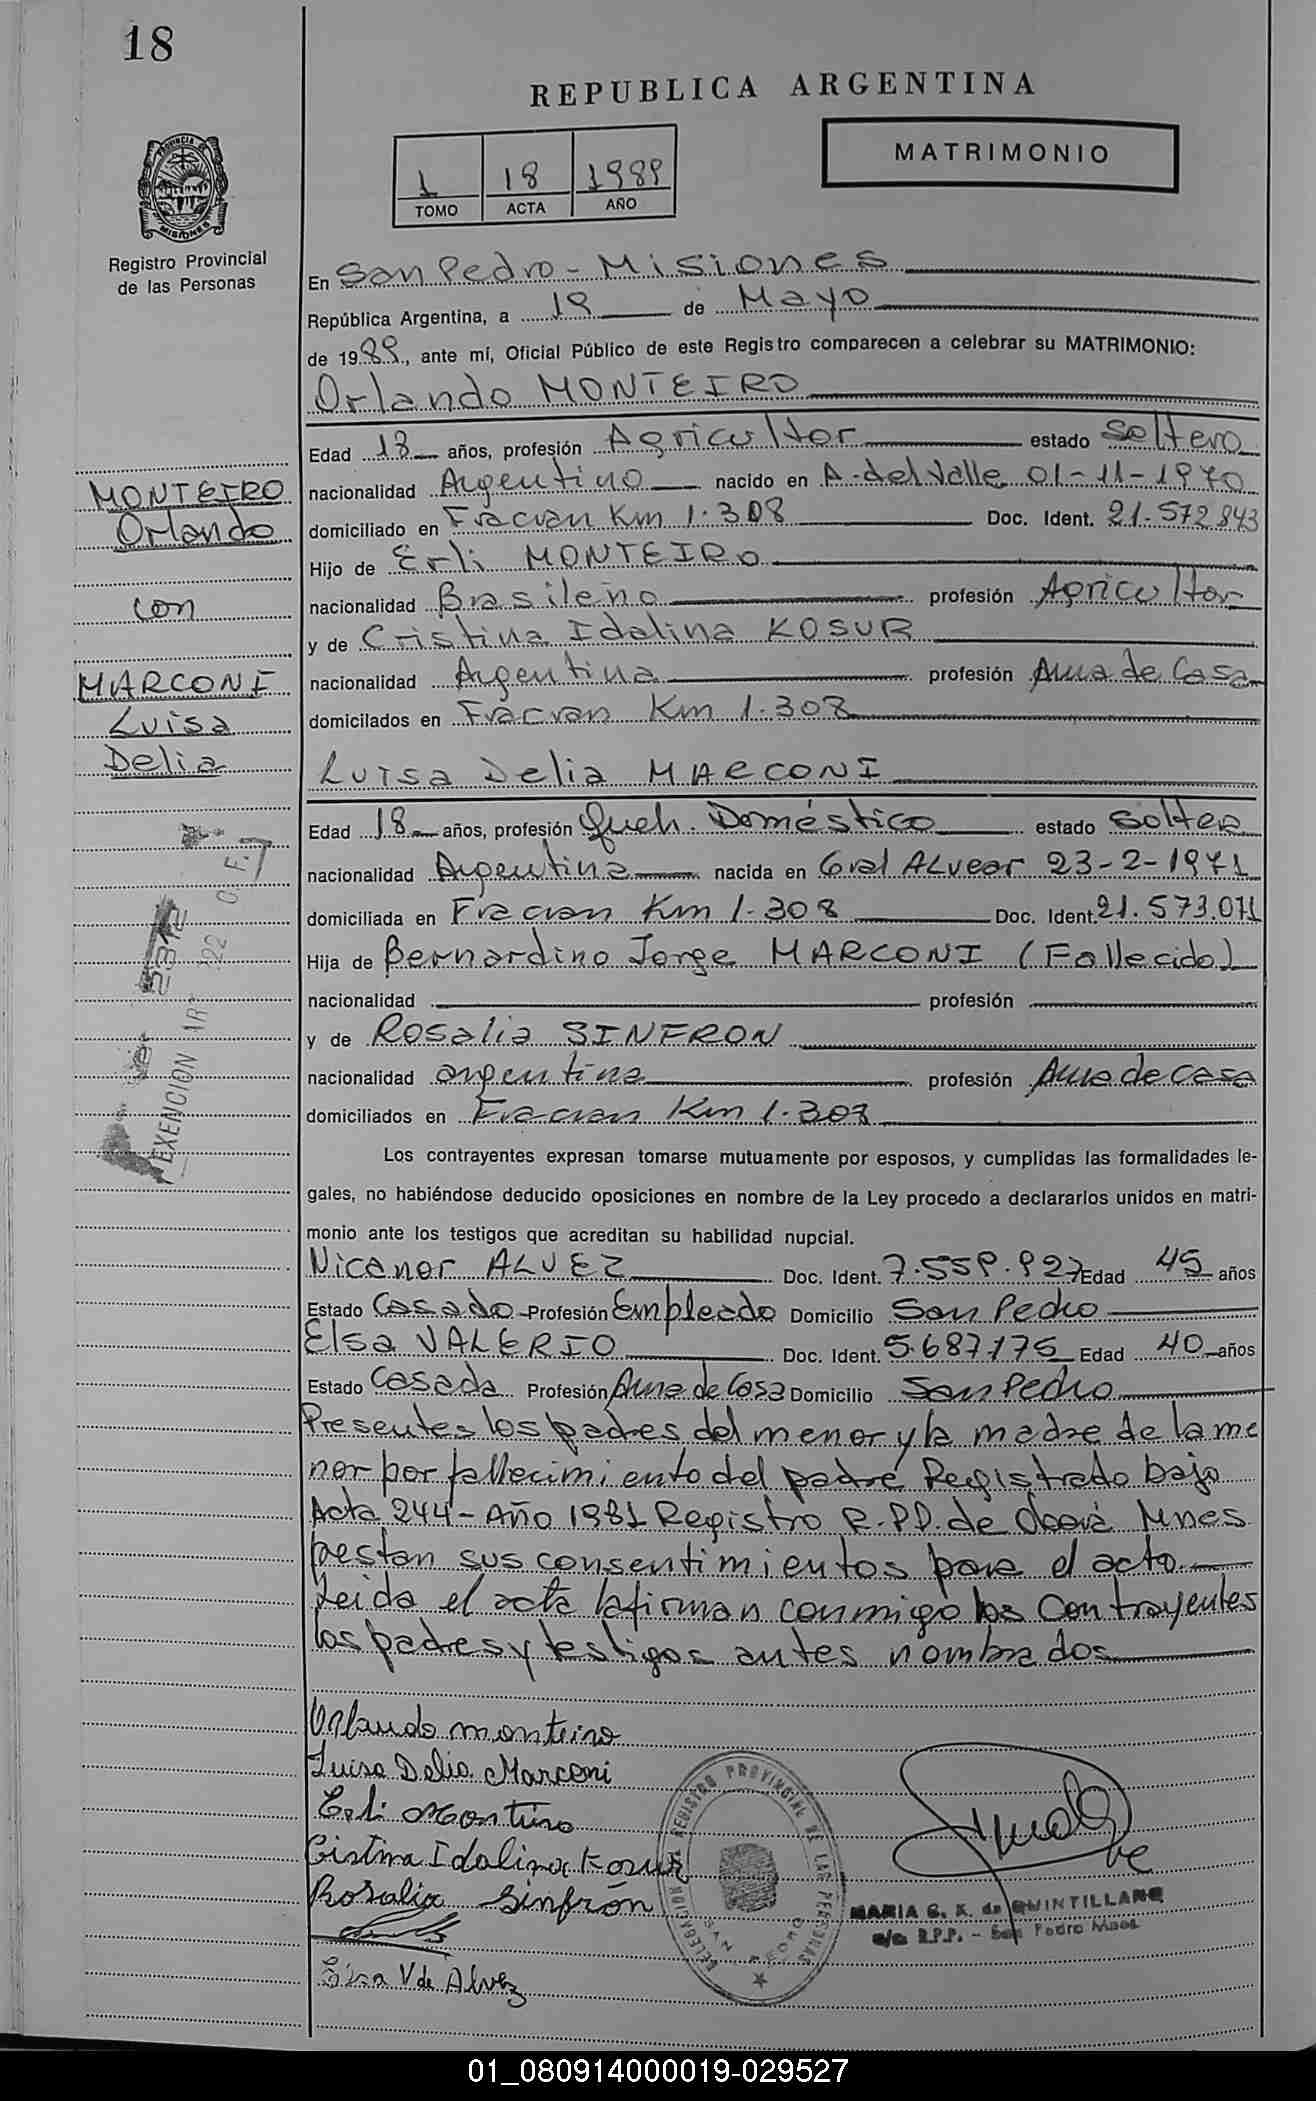 18
REPUBLICA ARGENTINA
MATRIMONIO
1 18 1989
TOMO ACTA AÑO
PROVINCIA DE MISIONES
Registro Provincial
de las Personas
En San Pedro - Misiones
República Argentina, a 19 de Mayo
de 1989, ante mí, Oficial Público de este Registro comparecen a celebrar su MATRIMONIO:
Orlando MONTEIRO
Edad 18 años, profesión Agricultor estado soltero
nacionalidad Argentino nacido en A. del Valle 01-11-1970
domiciliado en Fracran Km 1.308 Doc. Ident. 21.572.843
Hijo de Erli MONTEIRO
nacionalidad Brasileño profesión Agricultor
y de Cristina Idalina KOSUR
nacionalidad Argentina profesión Ama de Casa
domicilados en Fracran Km 1.308
MONTEIRO
Orlando
con
MARCONI
Luisa
Delia
Luisa Delia MARCONI
Edad 18 años, profesión Queh. Doméstico estado soltera
nacionalidad Argentina nacida en Gral ALvear 23-2-1971
domiciliada en Fracran Km 1.308 Doc. Ident. 21.573.071
Hija de Bernardino Jorge MARCONI (Fallecido)
nacionalidad profesión
y de Rosalia SINFRON
nacionalidad argentina profesión Ama de casa
domiciliados en Fracran Km 1.308
EXENCION ART 122 C.F.
Los contrayentes expresan tomarse mutuamente por esposos, y cumplidas las formalidades le-
gales, no habiéndose deducido oposiciones en nombre de la Ley procedo a declararlos unidos en matri-
monio ante los testigos que acreditan su habilidad nupcial.
Nicanor ALVEZ Doc. Ident. 7.559.927 Edad 45 años
Estado Casado Profesión Empleado Domicilio San Pedro
Elsa VALERIO Doc. Ident. 5.687.175 Edad 40 años
Estado Casada Profesión Ama de Casa Domicilio San Pedro
Presentes los padres del menor y la madre de la me
nor por fallecimiento del padre Registrado bajo
Acta 244 - Año 1981 Registro R.P.P. de Oberá Mnes
prestan sus consentimientos para el acto
Leida el acta la firman conmigo los Contrayentes
los padres y testigos antes nombrados
Orlando monteiro
Luisa Delia Marconi
Erli Monteiro
Cristina Idalina Kosur
Rosalia Sinfrón
Elsa V de Alvez
REGISTRO PROVINCIAL DE LAS PERSONAS
DELEGACION SAN PEDRO
MARIA G. K. de QUINTILLANO
a/c R.P.P. - San Pedro Mnes
01_080914000019-029527